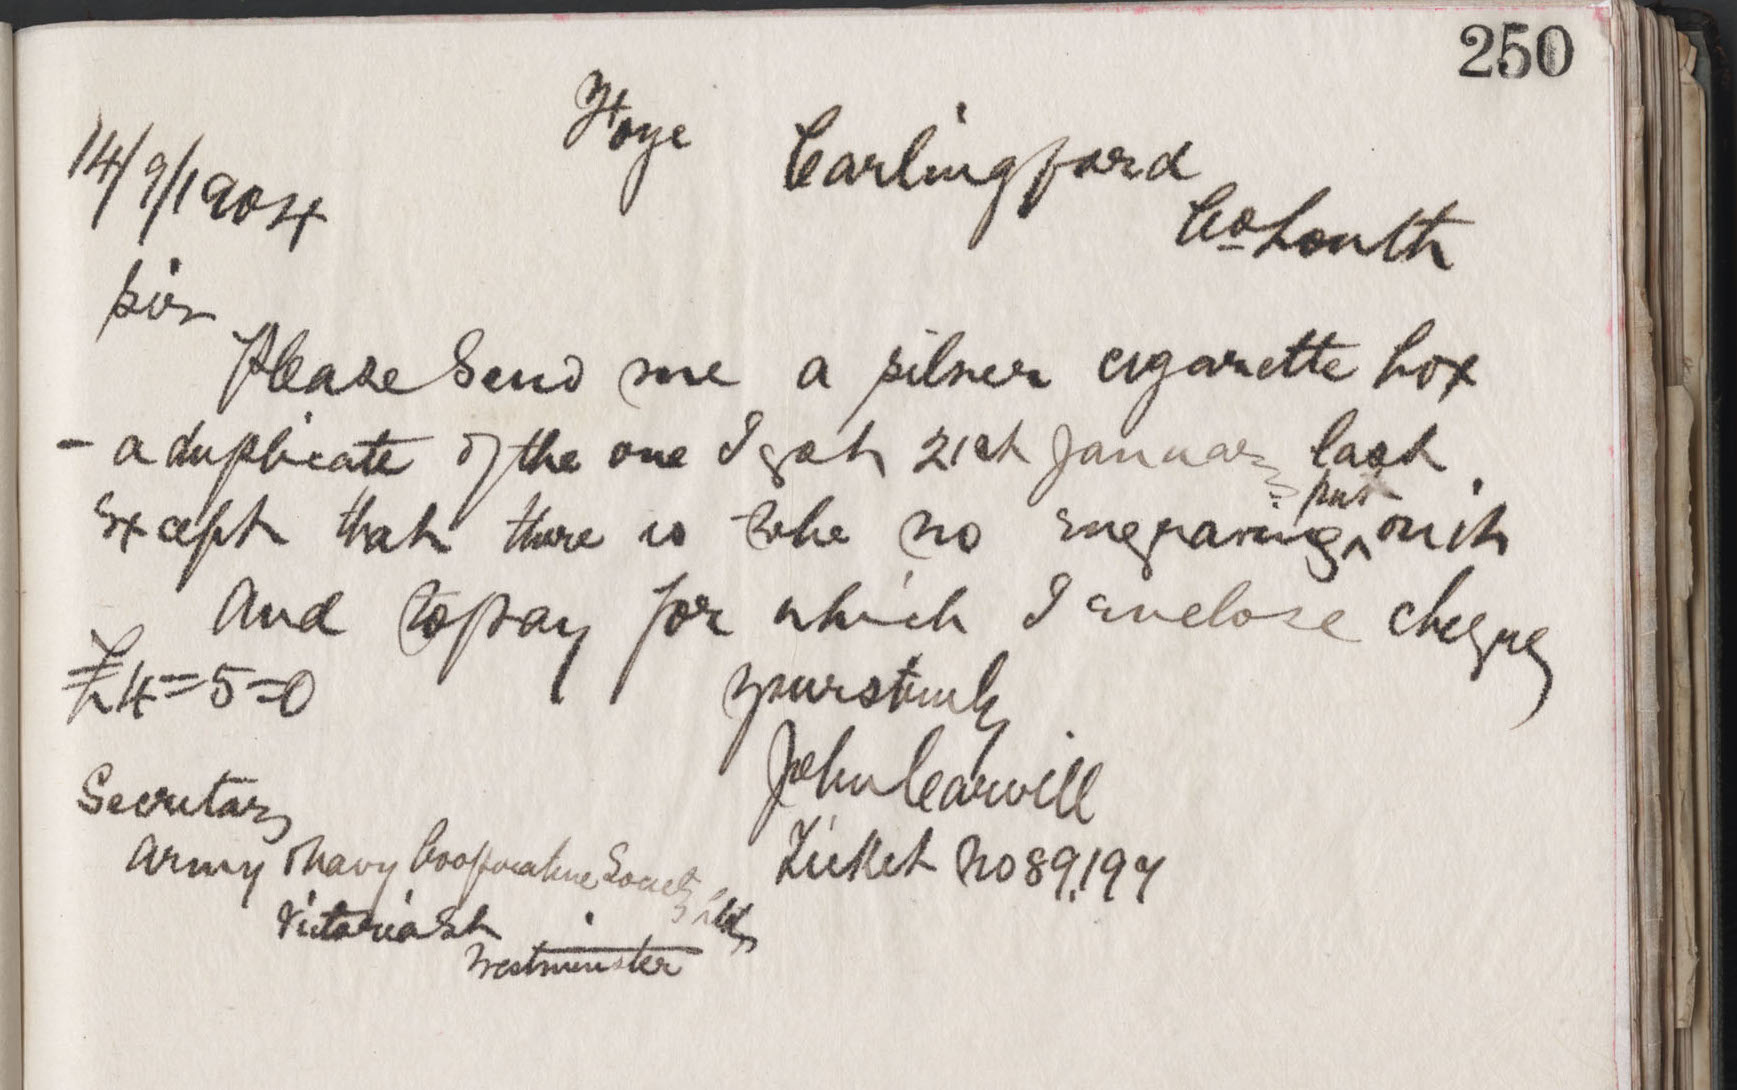 250
Foye Carlingford
Co Louth
14/9/1904
Sir
Please Send me a silver cigarette box
- a duplicate of the one I got 21st January last
put
Except that there is to be no engraving ^ on it
And to pay for which I enclose cheque
£4=5=0
yours truly
John Carvill
Ticket No 89,197
Secretary
Army & Navy Cooperative Society Ltd
Victoria St
Westminster